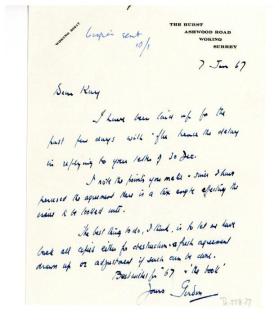 THE HURST
ASHWOOD ROAD
WOKING
SURREY
WOKING
Copies sent
10/1
7 Jan 67
Dear Kay
I have been laid up for the
past few days with 'flu hence the delay
in replying to your letter of 30 Dec.
I note the points you make & since I have
perused the agreement there is a tax angle affecting the
to be looked into.
The best thing to do, I think, is to let me have
back all copies either for destruction & a fresh agreement
drawn up or adjustment if such can be done.
Best wishes for '67 & "the book"
Yours